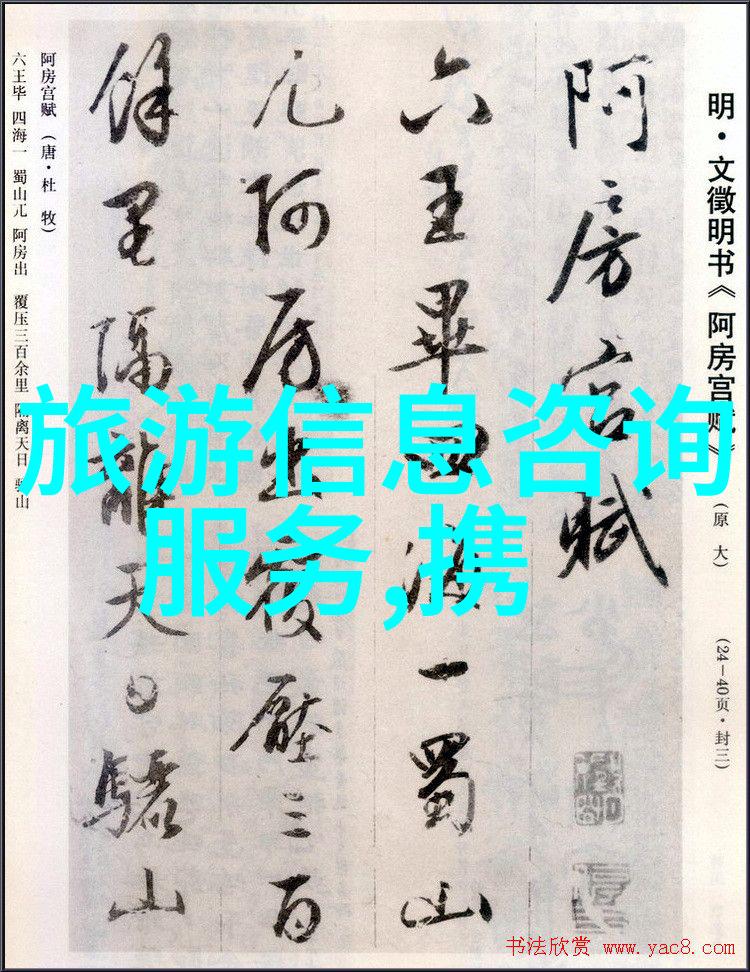 明·文徵明书《阿房宫赋》(原大) (24—40页·封三)
阿房宫賦
六王畢四海一蜀山
兀阿房出覆壓三百
餘里隔離天日驪山
阿房宫赋(唐·杜牧)
六王毕 四海一 蜀山兀 阿房出 覆压三百余里 隔离天日 骊山
旅游信息咨询
服务,携
书法欣赏 www.yac8.com